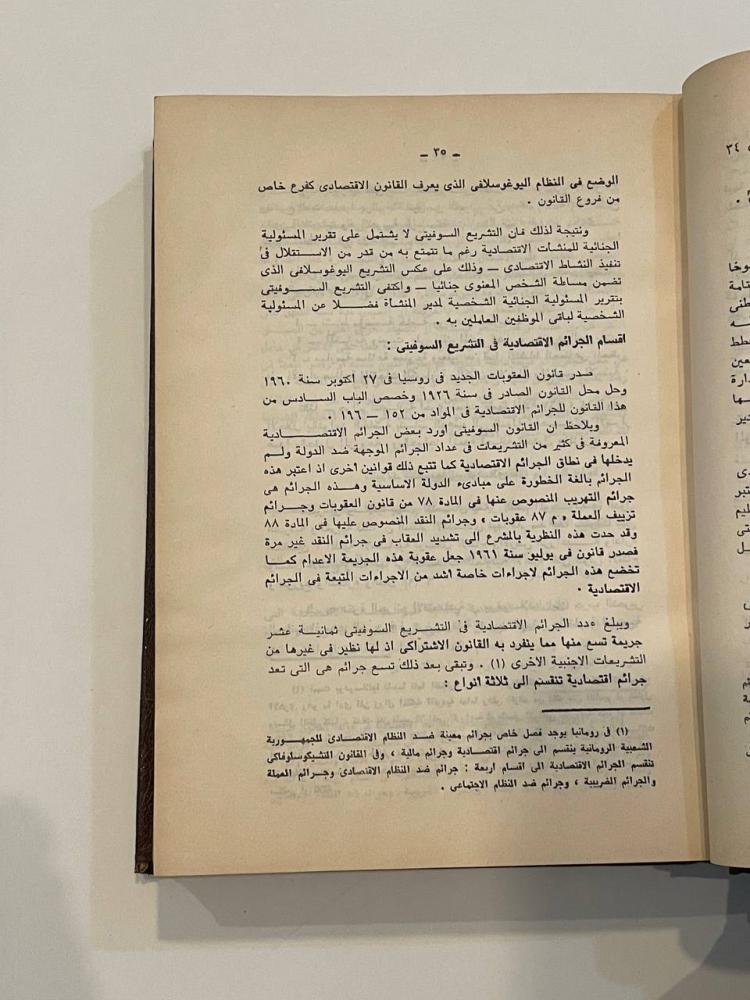 – ٣٥ –
الوضع فى النظام اليوغوسلافى الذى يعرف القانون الاقتصادى كفرع خاص
من فروع القانون .
ونتيجة لذلك فان التشريع السوفيتى لا يشتمل على تقرير المسئولية
الجنائية للمنشات الاقتصادية رغم ما تتمتع به من قدر من الاستقلال فى
تنفيذ النشاط الاقتصادى — وذلك على عكس التشريع اليوغوسلافى الذى
تضمن مساءلة الشخص المعنوى جنائيا — واكتفى التشريع السوفيتى
بتقرير المسئولية الجنائية الشخصية لمدير المنشاة فضلا عن المسئولية
الشخصية لباقى الموظفين العاملين به .
اقسام الجرائم الاقتصادية فى التشريع السوفيتى :
صدر قانون العقوبات الجديد فى روسيا فى ٢٧ أكتوبر سنة ١٩٦٠
وحل محل القانون الصادر فى سنة ١٩٢٦ وخصص الباب السادس من
هذا القانون للجرائم الاقتصادية فى المواد من ١٥٢ — ١٩٦ .
ويلاحظ ان القانون السوفيتى اورد بعض الجرائم الاقتصادية
المعروفة فى كثير من التشريعات فى عداد الجرائم الموجهة ضد الدولة ولم
يدخلها فى نطاق الجرائم الاقتصادية كما تتبع ذلك قوانين اخرى اذ اعتبر هذه
الجرائم بالغة الخطورة على مبادىء الدولة الاساسية وهذه الجرائم هى
جرائم التهريب المنصوص عنها فى المادة ٧٨ من قانون العقوبات وجرائم
تزييف العملة « م ٨٧ عقوبات » وجرائم النقد المنصوص عليها فى المادة ٨٨
وقد حدت هذه النظرية بالمشرع الى تشديد العقاب فى جرائم النقد غير مرة
فصدر قانون فى يوليو سنة ١٩٦١ جعل عقوبة هذه الجريمة الاعدام كما
تخضع هذه الجرائم لاجراءات خاصة اشد من الاجراءات المتبعة فى الجرائم
الاقتصادية .
ويبلغ عدد الجرائم الاقتصادية فى التشريع السوفيتى ثمانية عشر
جريمة تسع منها مما ينفرد به القانون الاشتراكى اذ لها نظير فى غيرها من
التشريعات الاجنبية الاخرى (١) . وتبقى بعد ذلك تسع جرائم هى التى تعد
جرائم اقتصادية تنقسم الى ثلاثة انواع :
(١) فى رومانيا يوجد فصل خاص بجرائم معينة ضد النظام الاقتصادى للجمهورية
الشعبية الرومانية ينقسم الى جرائم اقتصادية وجرائم مالية ، وفى القانون التشيكوسلوفاكى
تنقسم الجرائم الاقتصادية الى اقسام اربعة : جرائم ضد النظام الاقتصادى وجرائم العملة
والجرائم الضريبية ، وجرائم ضد النظام الاجتماعى .